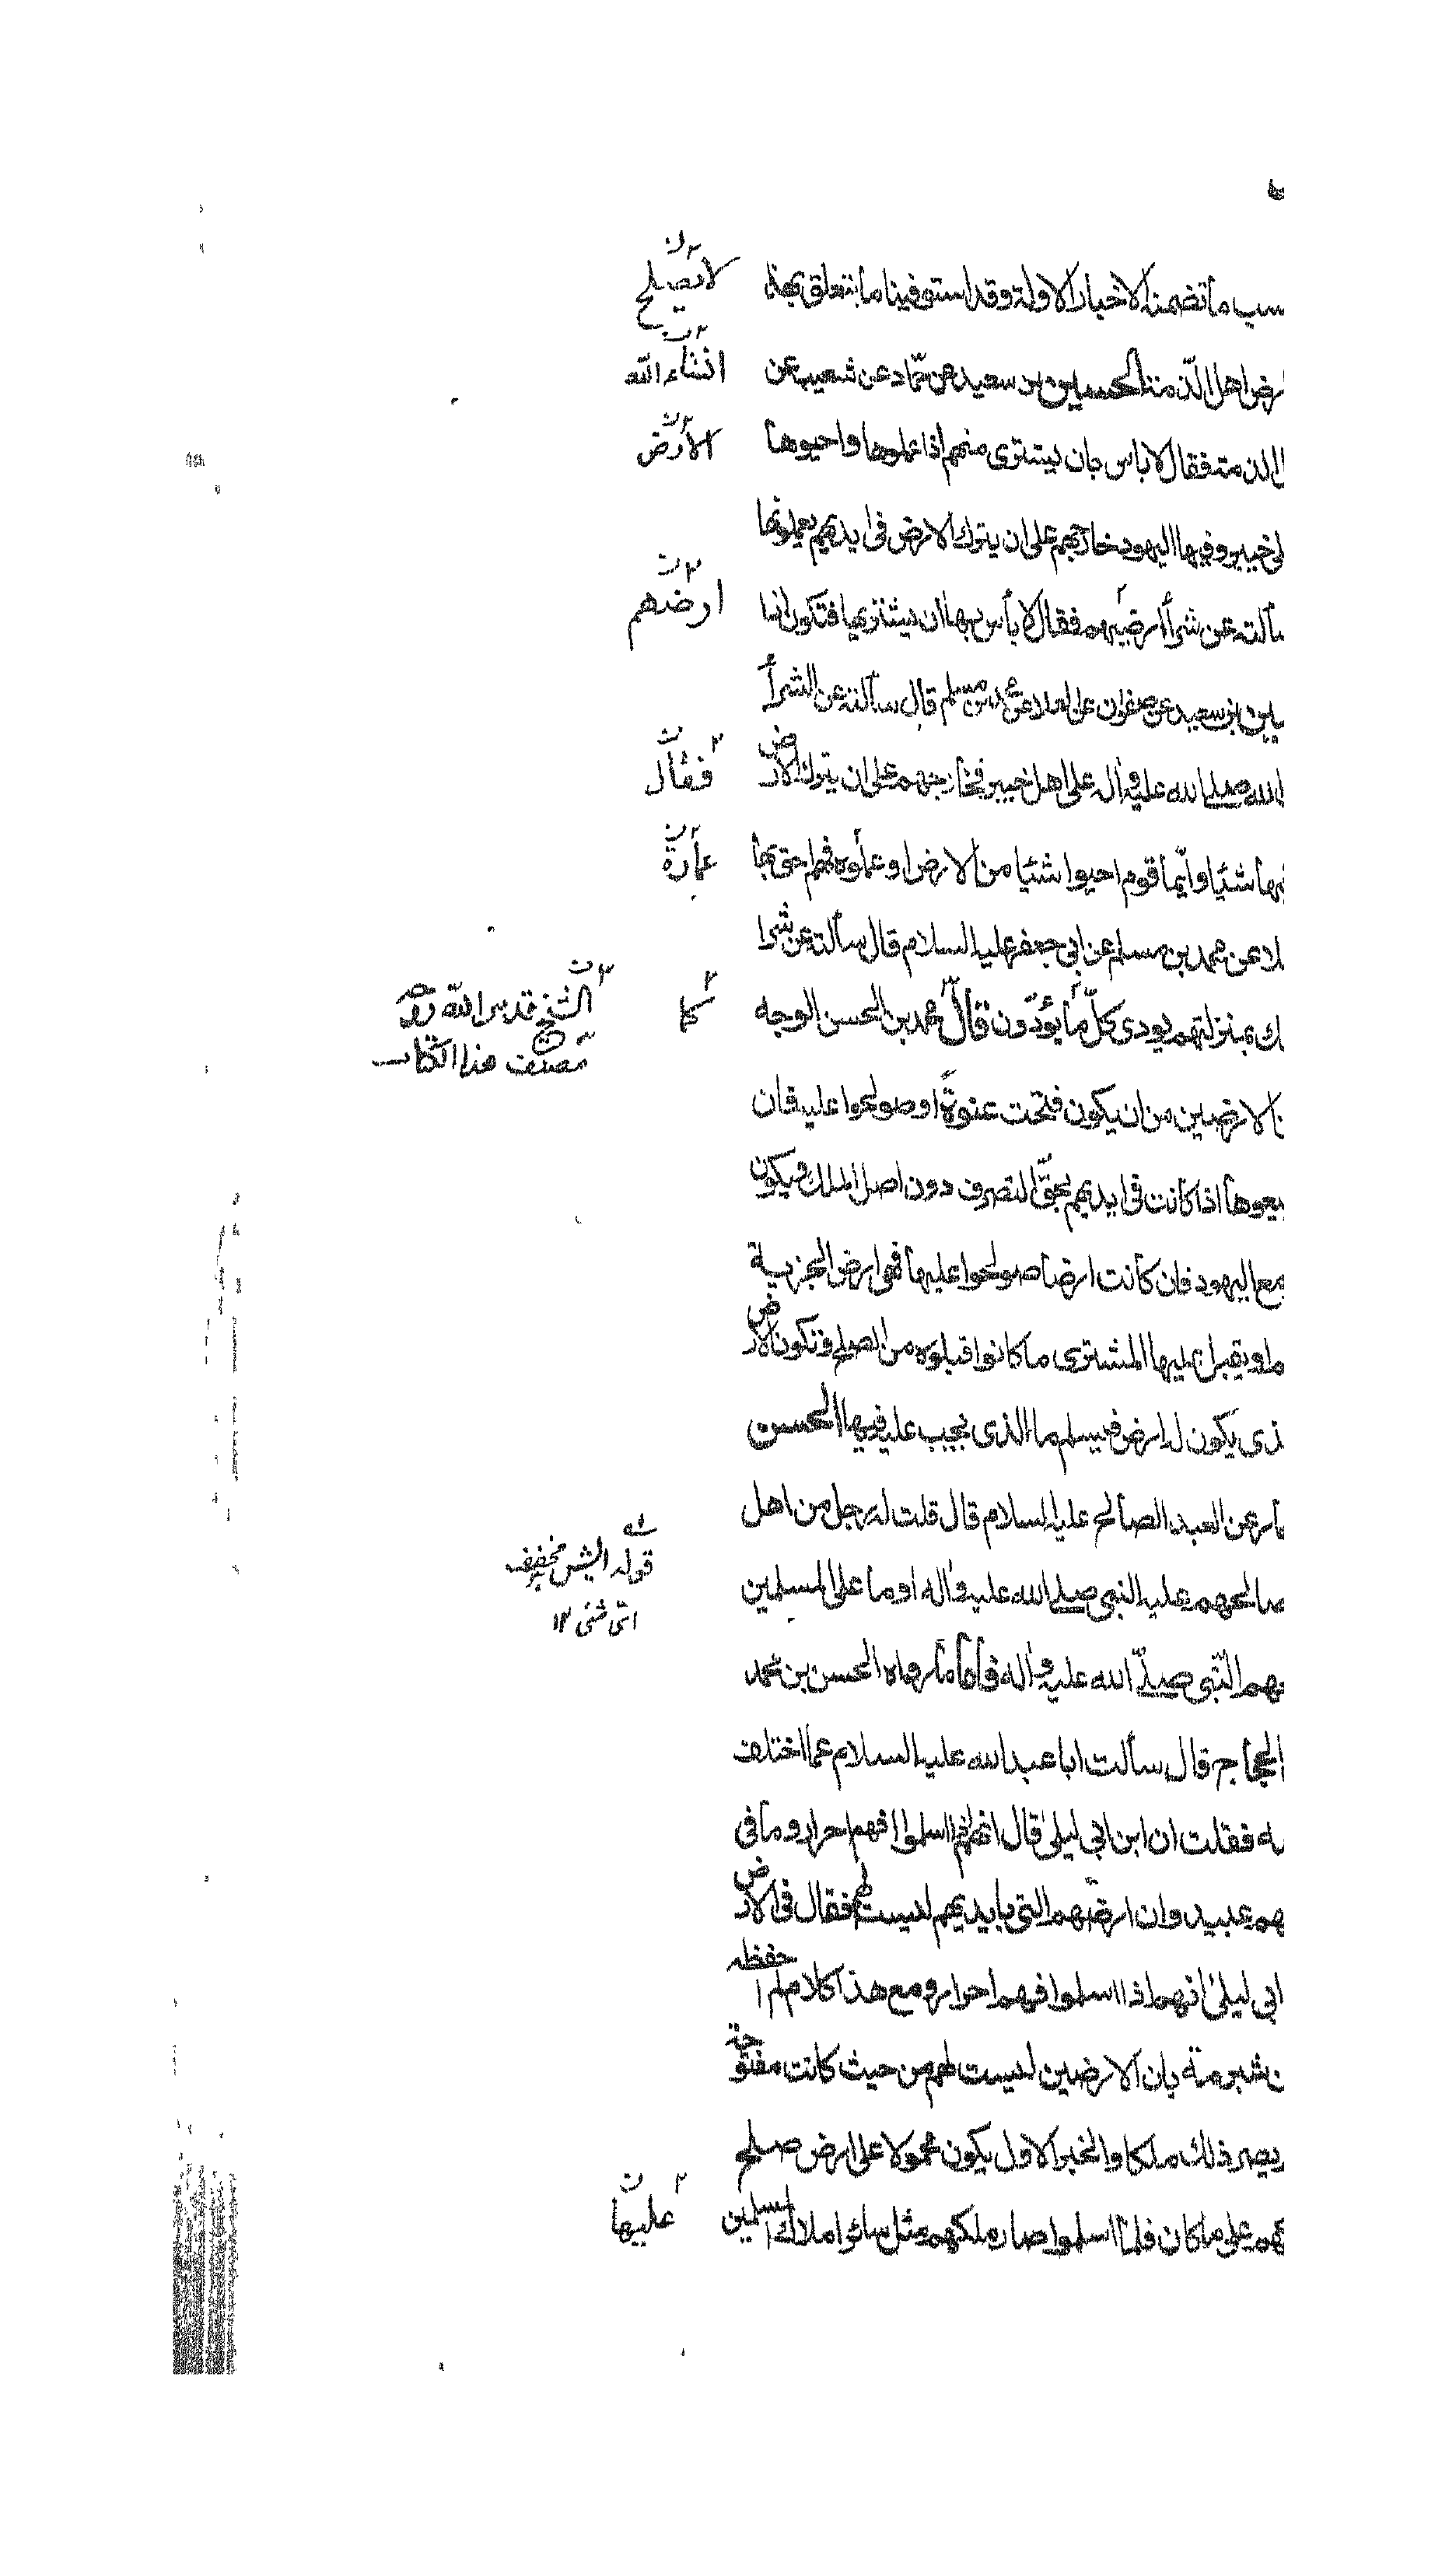 سب ما تضمنه الاخبار الاولة وقد استوفينا ما يتعلق بهذا
لا يصلح
رض اهل الذمة الحسين بن سعيد عن حماد عن شعيب عن
انشاء الله
الذمة فقال لا باس بان يشترى منهم اذا عملوها واحيوها
الأرض
لى خيبر وفيها اليهود خارجهم على ان يترك الارض فى ايديهم يعملونها
سألته عن شرأ ارضيهم فقال لا بأس بها ان يشتريها فتكون اذا
ارضهم
ين بن سعيد عن صفوان عن العلا عن محمد بن مسلم قال سألته عن الشرأ
الله صلى الله عليه وآله على اهل خيبر فخارجهم على ان يترك الارض
فقال
بها شيئا وايما قوم احيوا شيئا من الارض او عملوه فهم احق بها
عمارة
لا عن محمد بن مسلم عن ابى جعفر عليه السلام قال سألته عن شرا
ك بمنزلتهم يودى كل ما يؤدون قال محمد بن الحسن الوجه
كما
الشيخ قدس الله روحه
مصنف هذا الكتاب
الارضين من ان يكون فتحت عنوة او صولحوا عليه فان
يعوها اذا كانت فى ايديهم بحق التصرف دون اصل الملك ويكون
مع اليهود فان كانت ارضا صولحوا عليها فهى ارض الجزية
ما ويقبل عليها المشترى ما كانوا قبلوه من الصلح وتكون الارض
ذى يكون له ارض فيسلم ما الذى يجب عليه فيها الحسن
ار عن العبد الصالح عليه السلام قال قلت له رجل من اهل
قوله
صالحهم عليه النبى صلى الله عليه وآله او ما على المسلمين
هم النبى صلى الله عليه وآله فأما ما رواه الحسن بن محمد
الحجاج قال سألت ابا عبد الله عليه السلام عما اختلف
له فقلت ان ابن ابى ليلى قال انهم اذا اسلموا فهم احرار وما فى
هم عبيد وان ارضهم التى بايديهم ليست لهم فقال فى الارض
ابى ليلى انهم اذا اسلموا فهم احرار ومع هذا كلام لم احفظه
ن شبرمة بان الارضين ليست لهم من حيث كانت مفتوحة
يصر ذلك ملكا والخبر الاول يكون محمولا على ارض صلح
هم على ما كان فلما اسلموا صار ملكهم مثل سائر املاك المسلمين
عليها